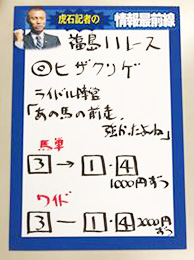 虎石記者の
情報最前線
福島11レース
◎ヒザクリゲ
ライバル陣営
「あの馬の前走、
強かったよね」
馬単
3→1・4
1000円ずつ
ワイド
3—1・4 2000円
ずつ